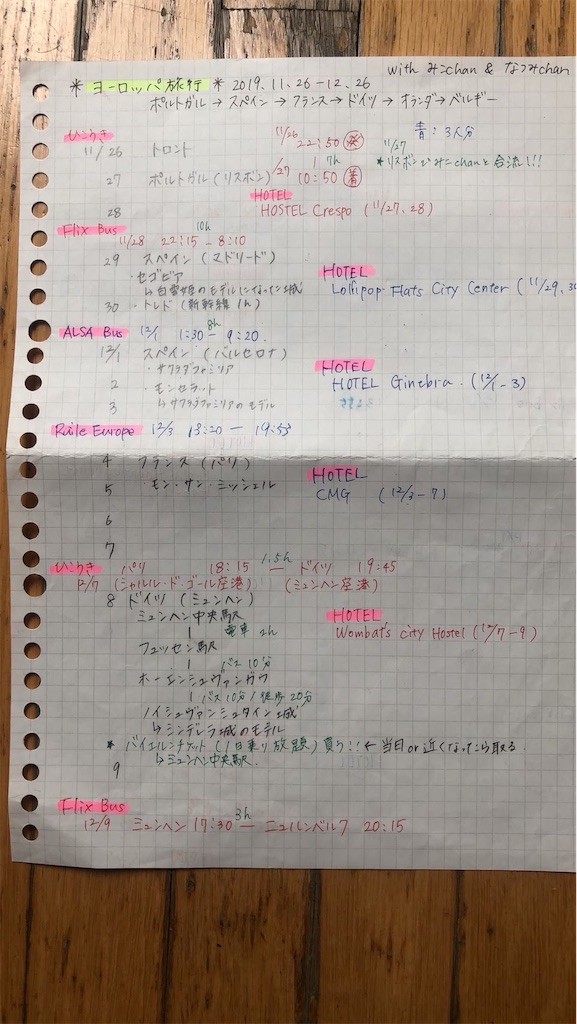 with みこchan & なつみchan
* ヨーロッパ旅行 * 2019.11.26-12.26
ポルトガル → スペイン → フランス → ドイツ → オランダ → ベルギー
青：3人分
ひこうき
11/26 トロント 11/26 22:50 発
7h
11/27
* リスボンでみこchanと合流!!
27 ポルトガル(リスボン) /27 10:50 着
HOTEL
28 HOSTEL Crespo (11/27, 28)
Flix Bus
10h
11/28 22:15 - 8:10
29 スペイン (マドリード)
HOTEL
・セゴビア
Lollipop Flats City Center (11/29, 30
↳ 白雪姫のモデルになった城
30 ・トレド (新幹線 1h)
ALSA Bus 12/1 1:30 - 9:20
8h
12/1 スペイン (バルセロナ)
・サグラダファミリア
HOTEL
HOTEL Ginebra. (12/1 - 3)
2 ・モンセラット
3 ↳ サグラダファミリアのモデル
Raile Europe 12/3 13:20 ー 19:53
4 フランス (パリ)
HOTEL
5 ・モン・サン・ミッシェル
CMG (12/3 - 7)
6
7
ひこうき パリ 18:15 ー ドイツ 19:45
1.5h
12/7 (シャルル・ド・ゴール空港) (ミュンヘン空港)
8 ドイツ (ミュンヘン)
HOTEL
ミュンヘン中央駅
Wombat's city Hostel (12/7 - 9)
| 電車 2h
フュッセン駅
| バス 10分
ホーエンシュヴァンガウ
| バス 10分 / 徒歩 20分
ノイシュヴァンシュタイン城
↳ シンデレラ城のモデル
* バイエルンチケット (1日乗り放題) 買う!! ← 当日or近くなったら取る
↳ ミュンヘン中央駅.
9
Flix Bus
3h
12/9 ミュンヘン 17:30 ー ニュルンベルク 20:15